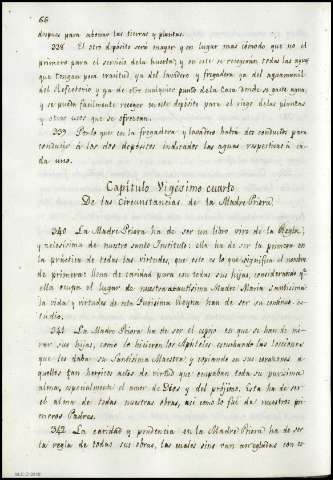 66
despues para abonar las tierras y plantas.
338 El otro depósito será mayor y en lugar mas cómodo que no el
primero para el servicio de la huerta; y en este se recogeran todas las aguas
que tengan poca travitud, ya del lavadero y fregadera, ya del aguamanil
del Refectorio y ya de otro cualquier punto de la Casa donde se gaste agua,
y se pueda facilmente recoger en este depósito para el riego de las plantas
y otros usos que se ofrezcan.
339 Por lo que en la fregadera y lavadero habrá dos conductos para
conducir á los dos depósitos indicados las aguas respectivas á ca-
da uno.
Capítulo Vigésimo cuarto
De las Circunstancias de la Madre Priora
340 La Madre Priora ha de ser un libro vivo de la Regla,
y celosísima de nuestro santo Instituto: ella ha de ser la primera en
la práctica de todas las virtudes, que esto es lo que significa el nombre
de primera: llena de caridad para con todas sus hijas, considerando qe
ella ocupa el lugar de nuestra Santísima Madre María Santísima:
la vida y virtudes de esta Purísima Reyna han de ser su continuo es-
tudio.
341 La Madre Priora ha de ser el espejo en que se han de mi-
rar sus hijas, como lo hicieron los Apóstoles escuchando las lecciones
que les daba su Santísima Maestra; y copiando en sus corazones a-
quellos tan heroicos actos de virtud que ocupaban toda su purísima
alma, especialmente el amor de Dios y del prójimo. Esta ha de ser
el alma de todas nuestras obras, así como lo fué de nuestros pri-
meros Padres.
342 La caridad y prudencia en la Madre Priora ha de ser
la regla de todas sus obras, las cuales sino van arregladas con es-